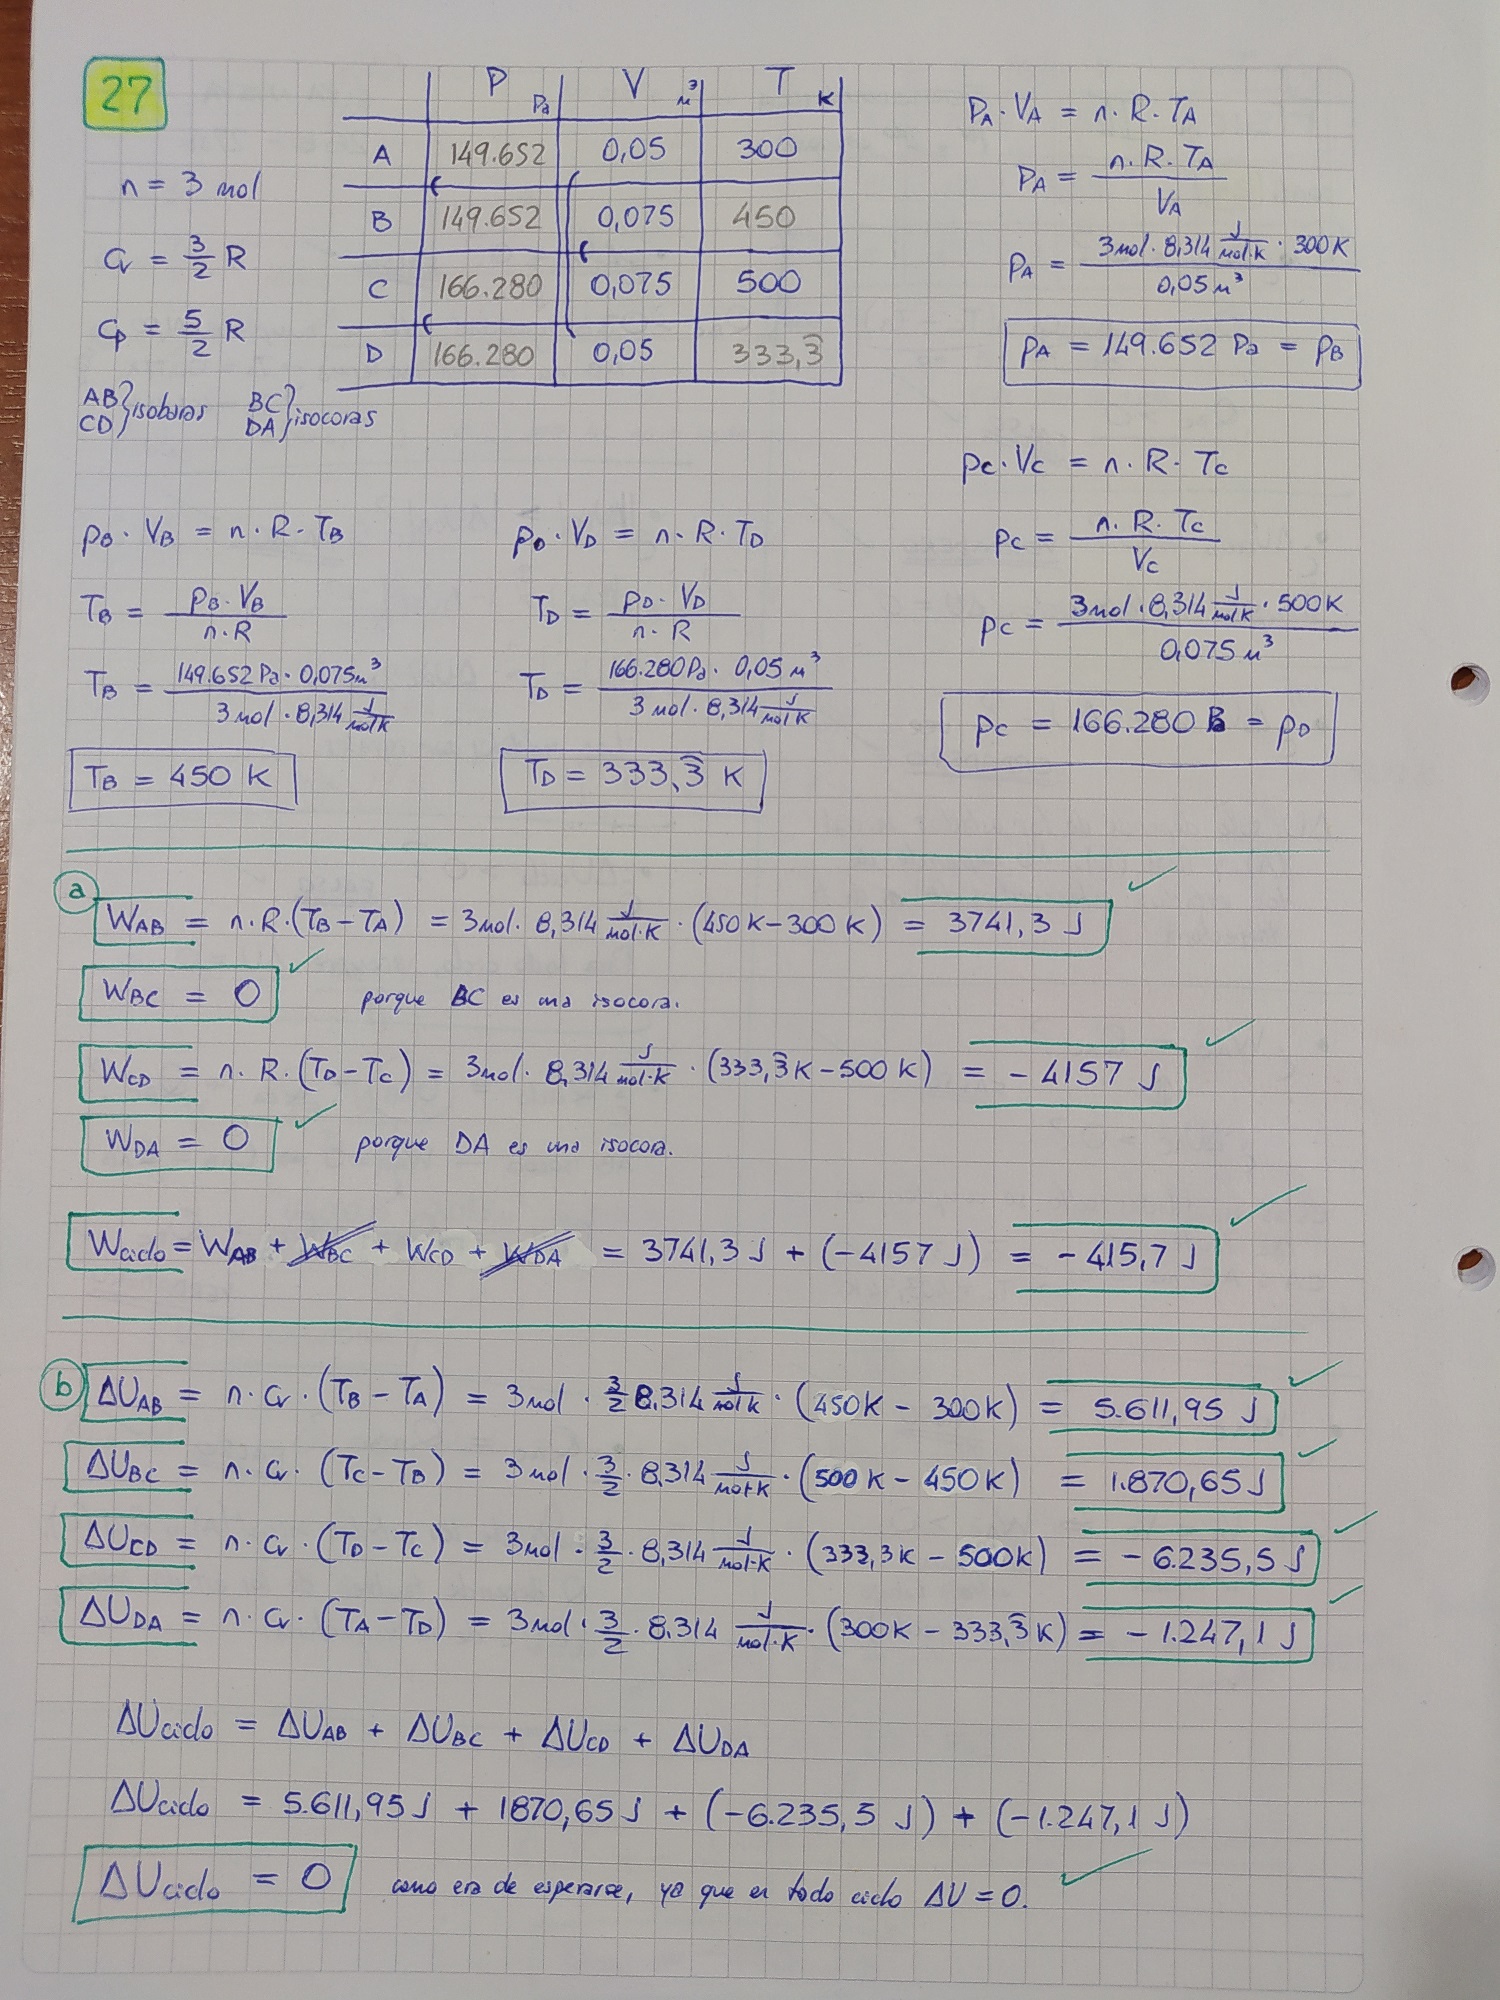 27
P Pa V m³ T K
A 149.652 0,05 300
B 149.652 0,075 450
C 166.280 0,075 500
D 166.280 0,05 333,3̂
n = 3 mol
Cv = 3/2 R
Cp = 5/2 R
AB
CD } isobaras
BC
DA } isocoras
PA · VA = n · R · TA
PA = n · R · TA / VA
PA = 3mol · 8,314 J/mol·K · 300K / 0,05 m³
PA = 149.652 Pa = PB
Pc · Vc = n · R · Tc
Pc = n · R · Tc / Vc
Pc = 3mol · 8,314 J/mol·K · 500K / 0,075 m³
Pc = 166.280 Pa = PD
PB · VB = n · R · TB
TB = PB · VB / n · R
TB = 149.652 Pa · 0,075 m³ / 3 mol · 8,314 J/mol·K
TB = 450 K
PD · VD = n · R · TD
TD = PD · VD / n · R
TD = 166.280 Pa · 0,05 m³ / 3 mol · 8,314 J/mol·K
TD = 333,3̂ K
a
WAB = n · R · (TB − TA) = 3mol · 8,314 J/mol·K · (450K − 300K) = 3741,3 J
WBC = 0 porque BC es una isocora.
WCD = n · R · (TD − TC) = 3mol · 8,314 J/mol·K · (333,3̂K − 500K) = −4157 J
WDA = 0 porque DA es una isocora.
Wciclo = WAB + WBC + WCD + WDA = 3741,3 J + (−4157 J) = −415,7 J
b
ΔUAB = n · Cv · (TB − TA) = 3mol · 3/2 8,314 J/mol·K · (450K − 300K) = 5.611,95 J
ΔUBC = n · Cv · (TC − TB) = 3mol · 3/2 · 8,314 J/mol·K · (500K − 450K) = 1.870,65 J
ΔUCD = n · Cv · (TD − TC) = 3mol · 3/2 · 8,314 J/mol·K · (333,3K − 500K) = −6.235,5 J
ΔUDA = n · Cv · (TA − TD) = 3mol · 3/2 · 8,314 J/mol·K · (300K − 333,3̂K) = −1.247,1 J
ΔUciclo = ΔUAB + ΔUBC + ΔUCD + ΔUDA
ΔUciclo = 5.611,95 J + 1870,65 J + (−6.235,5 J) + (−1.247,1 J)
ΔUciclo = 0 como era de esperarse, ya que en todo ciclo ΔU = 0.